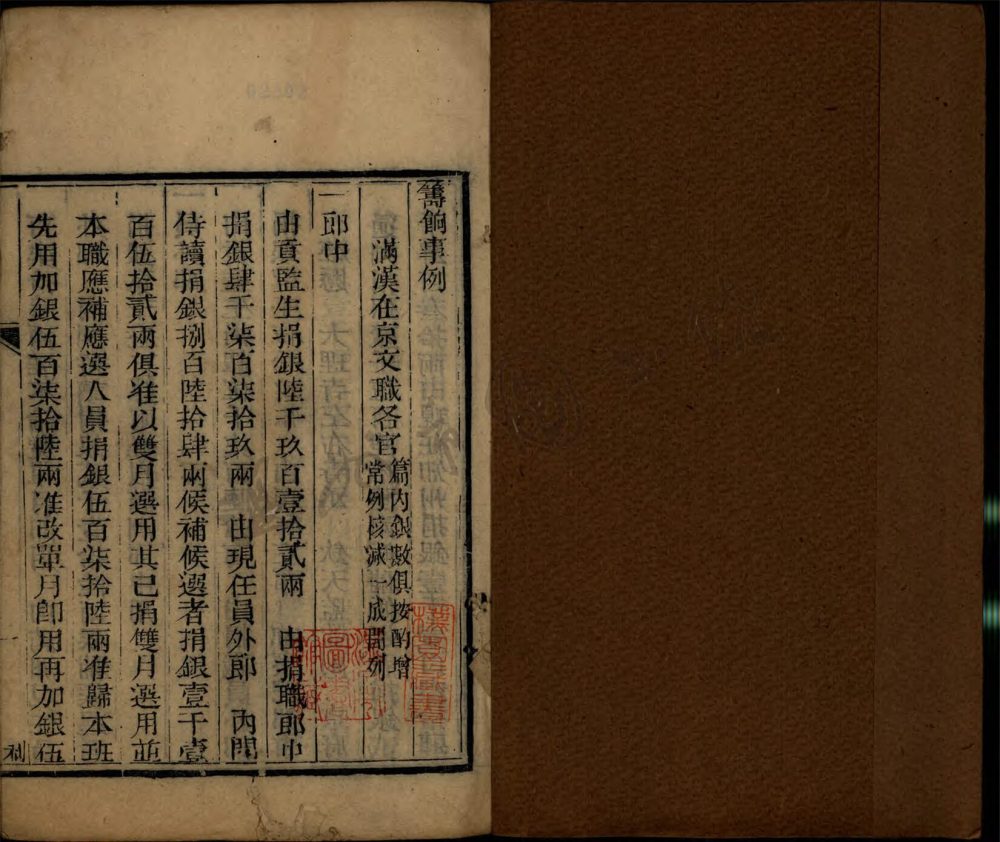 籌餉事例
滿漢在京文職各官
篇內銀數俱按酌增
常例核減一成開列
一郎中
由貢監生捐銀陸千玖百壹拾貳兩　由捐職郎中
捐銀肆千柒百柒拾玖兩　由現任員外郎　內閣
侍讀捐銀捌百陸拾肆兩候補候選者捐銀壹千壹
百伍拾貳兩俱准以雙月選用其已捐雙月選用並
本職應補應選人員捐銀伍百柒拾陸兩准歸本班
先用加銀伍百柒拾陸兩准改單月卽用再加銀伍
利